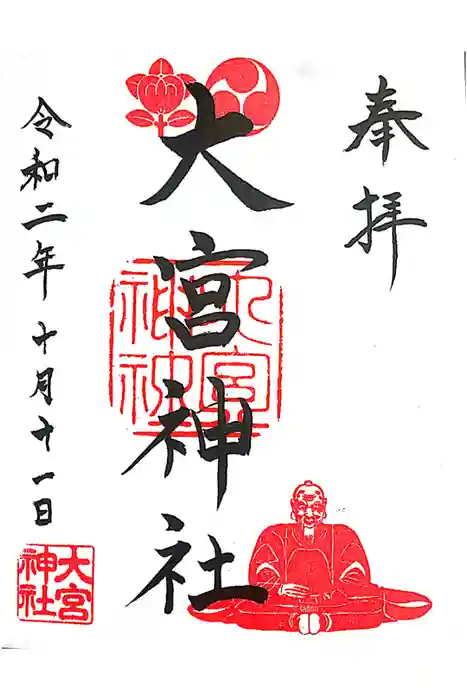 奉拝
大宮神社
大宮
神社
令和二年十月十一日
大宮
神社